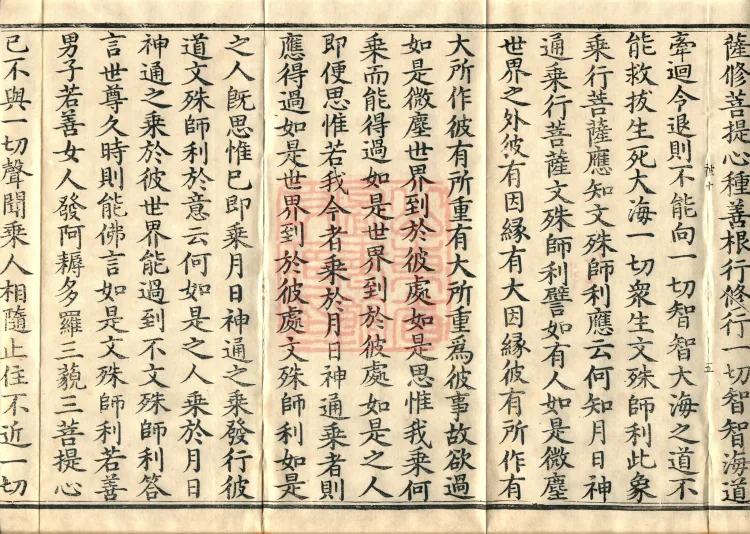 薩修菩提心種善根行修行一切智智海道
牽迴令退則不能向一切智智大海之道不
能救拔生死大海一切衆生文殊師利此象
乘行菩薩應知文殊師利應云何知月日神
通乘行菩薩文殊師利譬如有人如是微塵
世界之外彼有因緣有大因緣彼有所作有
大所作彼有所重有大所重爲彼事故欲過
如是微塵世界到於彼處如是思惟我乘何
乘而能得過如是世界到於彼處如是之人
即便思惟若我今者乘於月日神通乘者則
應得過如是世界到於彼處文殊師利如是
之人旣思惟已即乘月日神通之乘發行彼
道文殊師利於意云何如是之人乘於月日
神通之乘於彼世界能過到不文殊師利答
言世尊久時則能佛言如是文殊師利若善
男子若善女人發阿耨多羅三藐三菩提心
已不與一切聲聞乘人相隨止住不近一切